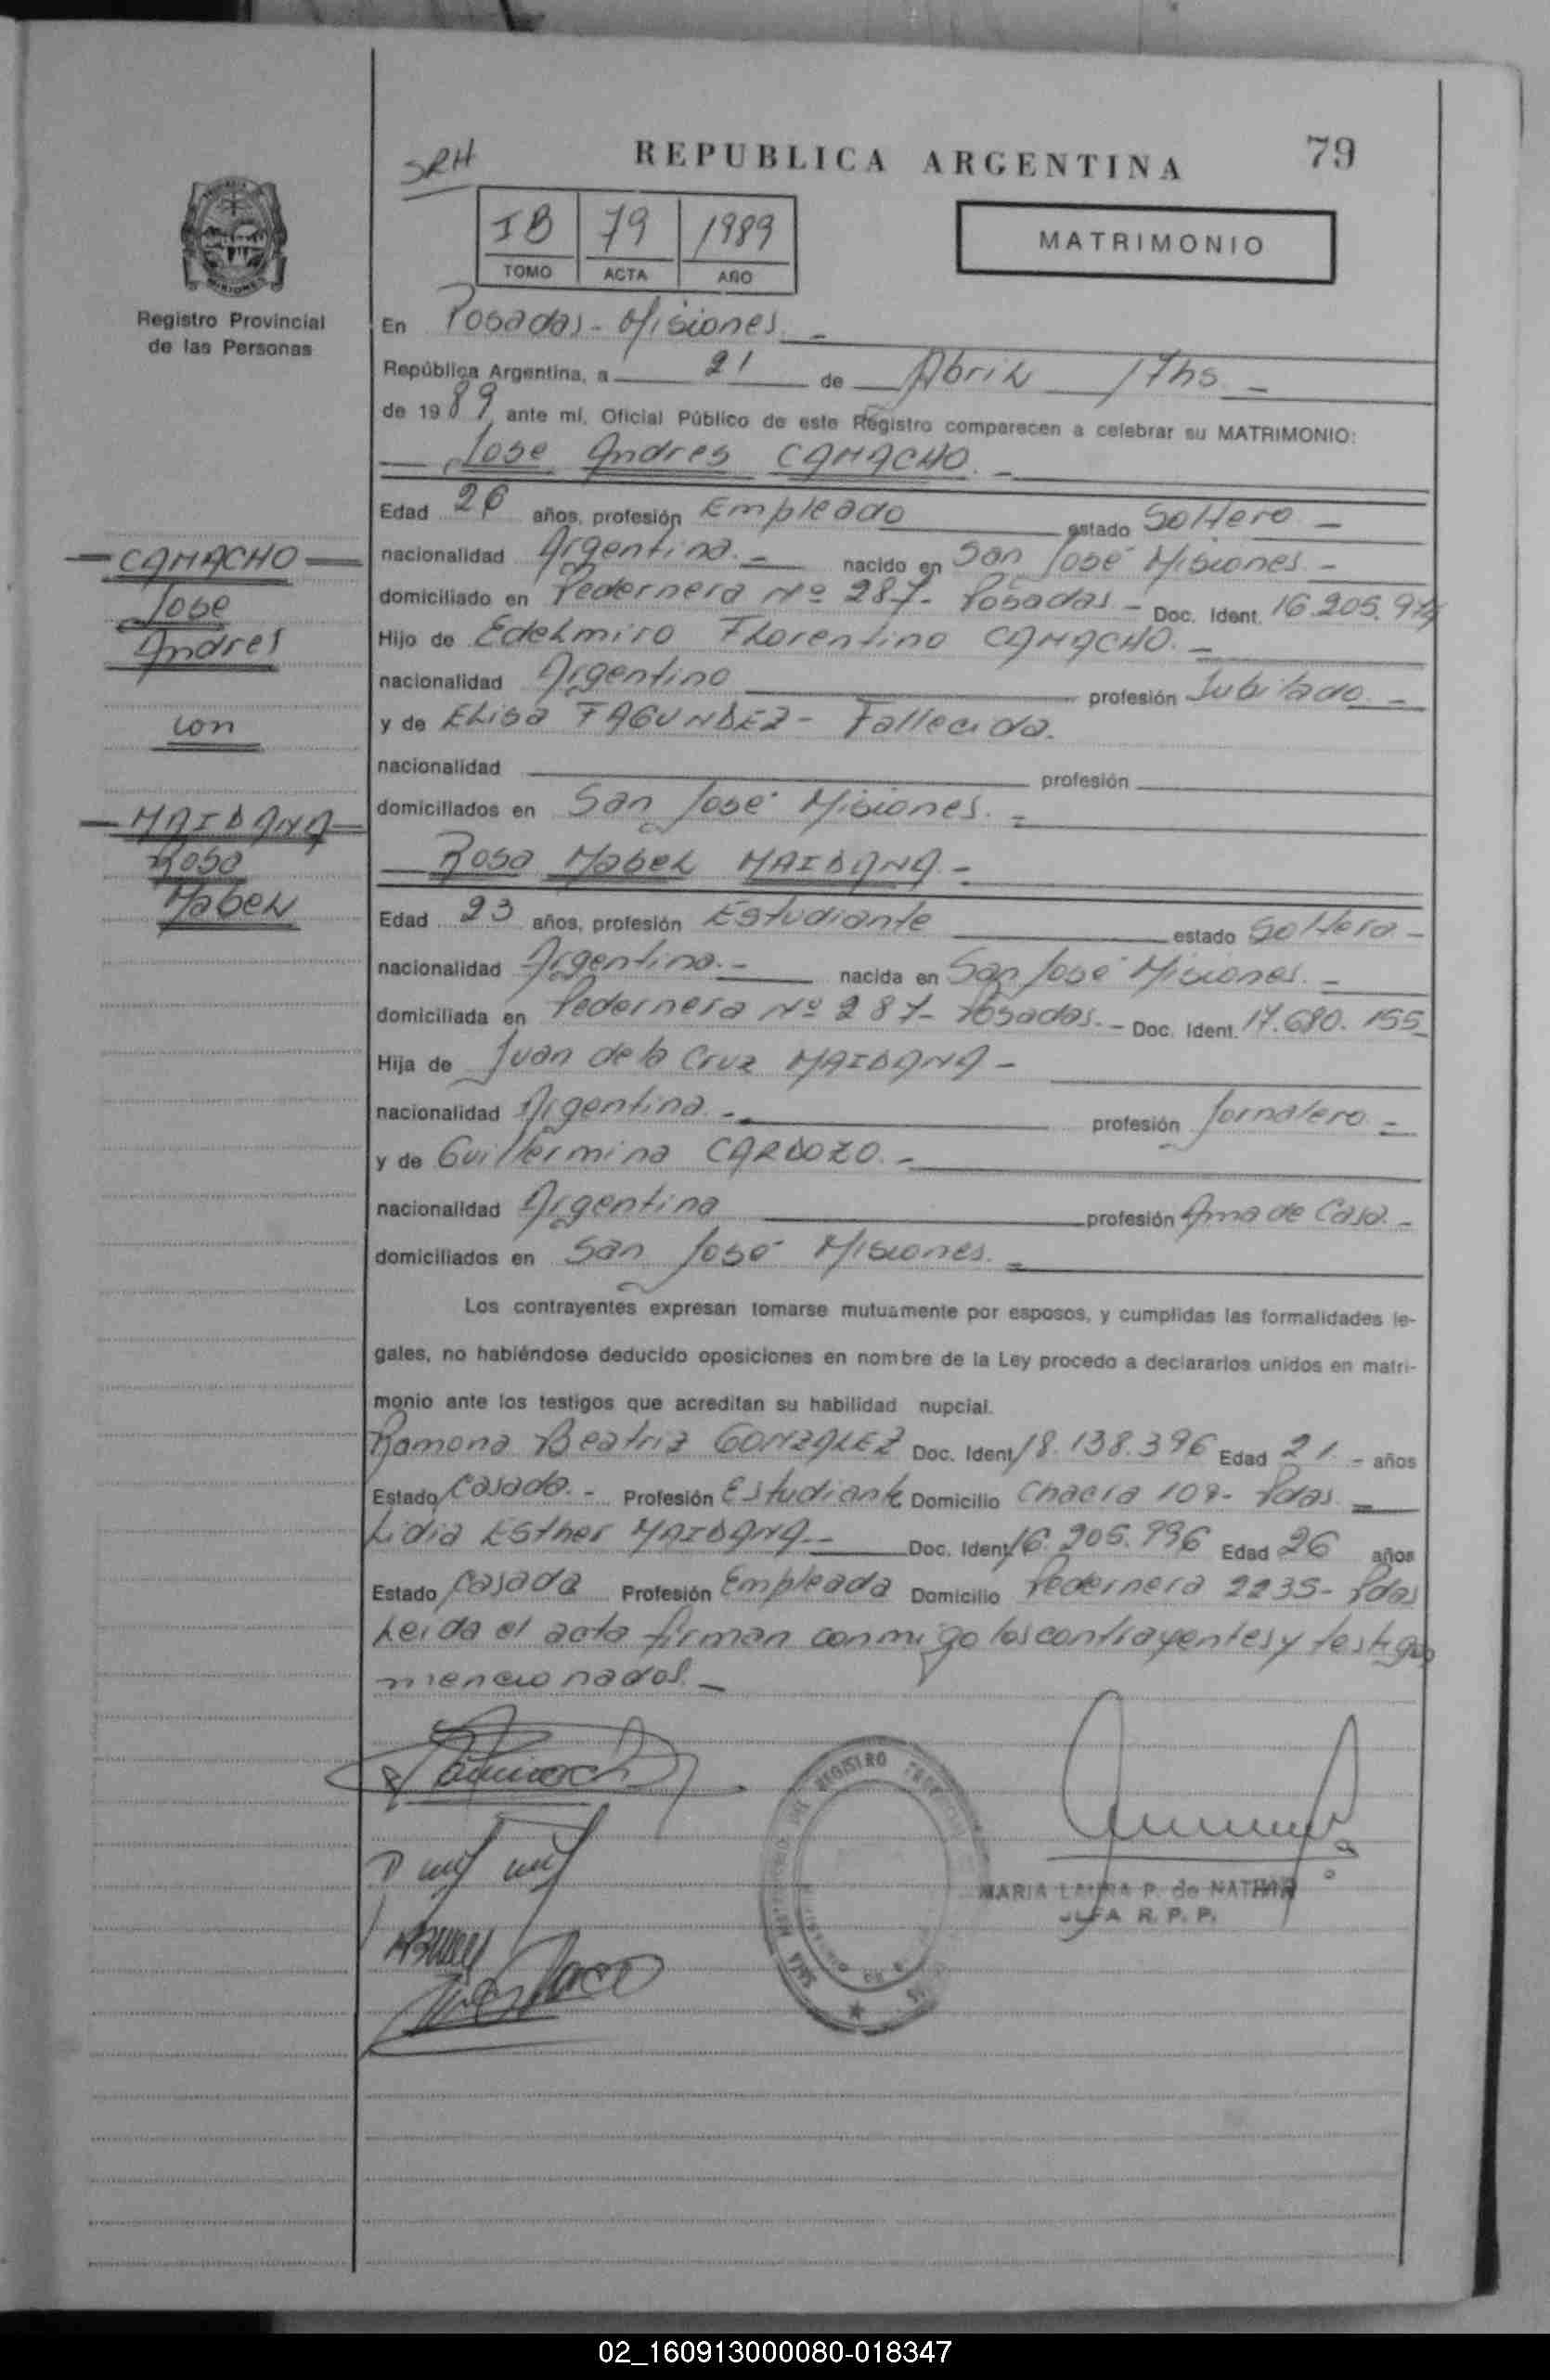 REPUBLICA ARGENTINA
79
SRH
IB 79 1989
TOMO ACTA AÑO
MATRIMONIO
Registro Provincial
de las Personas
En Posadas - Misiones. -
República Argentina, a 21 de Abril 17hs. -
de 1989 ante mí, Oficial Público de este Registro comparecen a celebrar su MATRIMONIO:
Jose Andres CAMACHO. -
Edad 26 años, profesión Empleado estado Soltero -
nacionalidad Argentina. - nacido en San José Misiones. -
domiciliado en Pedernera Nº 287 - Posadas. - Doc. Ident. 16.205.974
Hijo de Edelmiro Florentino CAMACHO. -
nacionalidad Argentino profesión Jubilado. -
y de Elisa FAGUNDEZ - Fallecida.
nacionalidad profesión
domiciliados en San José Misiones. -
Rosa Mabel MAIDANA. -
Edad 23 años, profesión Estudiante estado Soltera -
nacionalidad Argentina. - nacida en San José Misiones. -
domiciliada en Pedernera Nº 287 - Posadas. - Doc. Ident. 17.680.155
Hija de Juan de la Cruz MAIDANA -
nacionalidad Argentina. - profesión Jornalero -
y de Guillermina CARDOZO. -
nacionalidad Argentina profesión Ama de Casa. -
domiciliados en San José Misiones. -
Los contrayentes expresan tomarse mutuamente por esposos, y cumplidas las formalidades le-
gales, no habiéndose deducido oposiciones en nombre de la Ley procedo a declararlos unidos en matri-
monio ante los testigos que acreditan su habilidad nupcial.
Ramona Beatriz GONZALEZ Doc. Ident 18.138.396 Edad 21 - años
Estado Casada. - Profesión Estudiante Domicilio Chacra 109 - Pdas.
Lidia Esther MAIDANA - Doc. Ident 16.205.996 Edad 26 años
Estado Casada Profesión Empleada Domicilio Pedernera 2235 - Pdas
Leida el acta firman conmigo los contrayentes y testigos
mencionados. -
CAMACHO
Jose
Andres
con
MAIDANA
Rosa
Mabel
REGISTRO
MARIA LAURA P. de NATHAN
JEFA R. P. P.
02_160913000080-018347